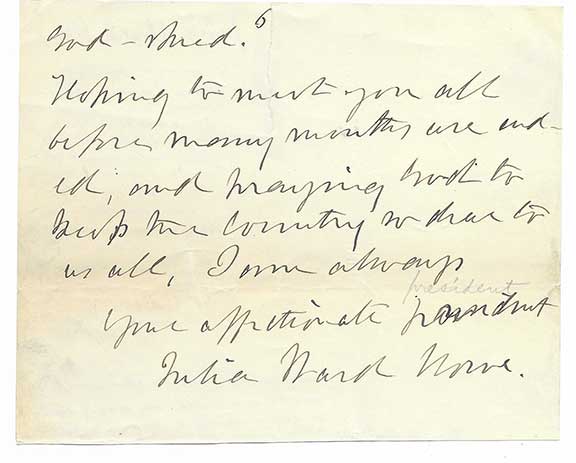 God-speed. 6
Hoping to meet you all
before many months are end-
ed, and praying God to
keep the country so dear to
us all, I am always
president
your affectionate president
Julia Ward Howe.